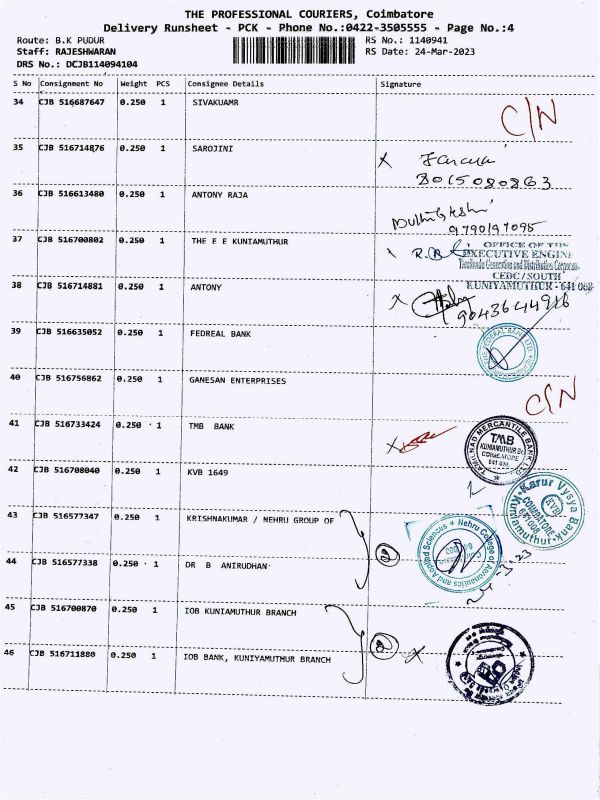 THE PROFESSIONAL COURIERS, Coimbatore
Delivery Runsheet - PCK - Phone No.:0422-3505555 - Page No.:4
Route: B.K PUDUR RS No.: 1140941
Staff: RAJESHWARAN RS Date: 24-Mar-2023
DRS No.: DCJB114094104
S No Consignment No Weight PCS Consignee Details Signature
34 CJB 516687647 0.250 1 SIVAKUAMR C/N
35 CJB 516714876 0.250 1 SAROJINI X
8015080863
36 CJB 516613480 0.250 1 ANTONY RAJA
9790197095
37 CJB 516700802 0.250 1 THE E E KUNIAMUTHUR
OFFICE OF THE
EXECUTIVE ENGINE
Tamilnadu Generation and Distribution Corporation
CEDC / SOUTH
KUNIYAMUTHUR - 641 008
38 CJB 516714881 0.250 1 ANTONY X
9043644916
39 CJB 516635052 0.250 1 FEDREAL BANK
FEDERAL BANK LTD
40 CJB 516756862 0.250 1 GANESAN ENTERPRISES C/N
41 CJB 516733424 0.250 1 TMB BANK X
TAMILNAD MERCANTILE BANK LTD
TMB
KUNIAMUTHUR
COIMBATORE
641 008
42 CJB 516708040 0.250 1 KVB 1649
Karur Vysya Bank
KVB
COIMBATORE
641008
Kuniamuthur
43 CJB 516577347 0.250 1 KRISHNAKUMAR / NEHRU GROUP OF 2
Nehru College of Aeronautics and Applied Sciences
44 CJB 516577338 0.250 1 DR B ANIRUDHAN
45 CJB 516700870 0.250 1 IOB KUNIAMUTHUR BRANCH 2
46 CJB 516711880 0.250 1 IOB BANK, KUNIYAMUTHUR BRANCH X